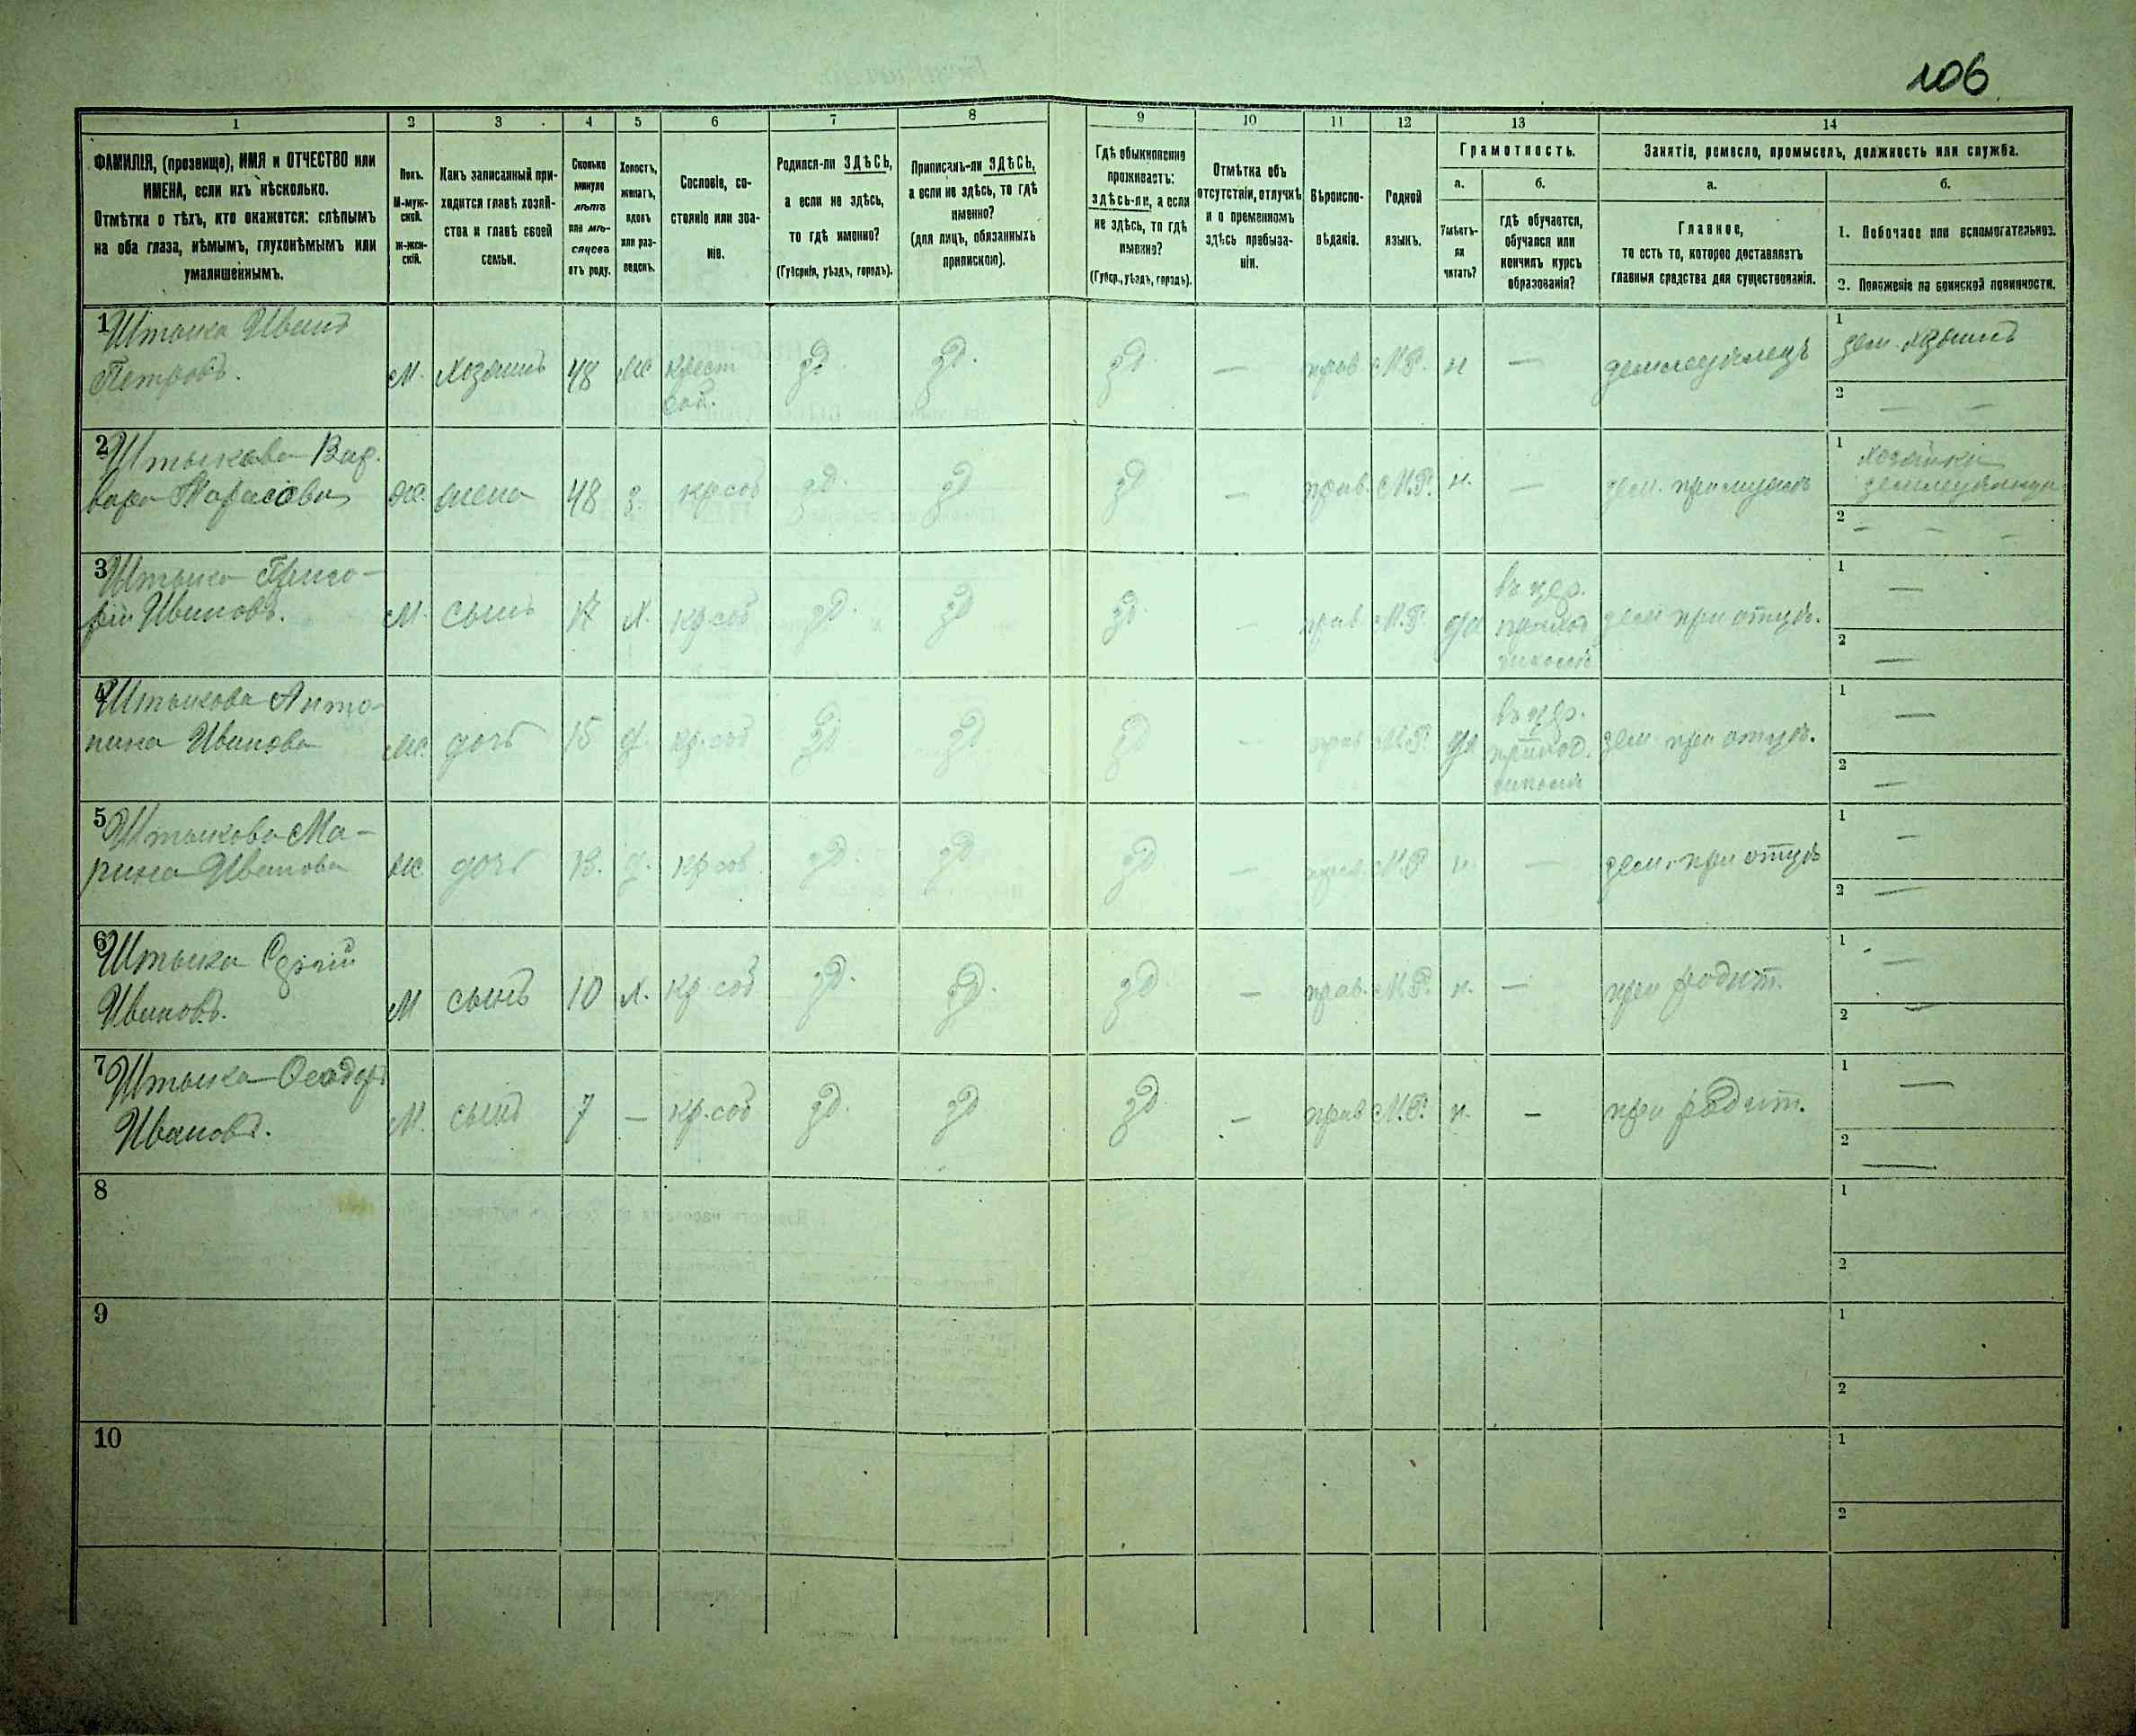 106
1 2 3 4 5 6 7 8 9 10 11 12 13 14
ФАМИЛІЯ, (прозвище), ИМЯ и ОТЧЕСТВО или
ИМЕНА, если ихъ нѣсколько.
Отмѣтка о тѣхъ, кто окажется: слѣпымъ
на оба глаза, нѣмымъ, глухонѣмымъ или
умалишеннымъ.
Полъ.
М-муж-
ской.
Ж-жен-
скій.
Какъ записанный при-
ходится главѣ хозяй-
ства и главѣ своей
семьи.
Сколько
минуло
лѣтъ
или мѣ-
сяцевъ
отъ роду.
Холостъ,
женатъ,
вдовъ
или раз-
веденъ.
Сословіе, со-
стояніе или зва-
ніе.
Родился-ли ЗДѢСЬ,
а если не здѣсь,
то гдѣ именно?
(Губернія, уѣздъ, городъ).
Приписанъ-ли ЗДѢСЬ,
а если не здѣсь, то гдѣ
именно?
(для лицъ, обязанныхъ
припискою).
Гдѣ обыкновенно
проживаетъ:
здѣсь-ли, а если
не здѣсь, то гдѣ
именно?
(Губер., уѣздъ, городъ).
Отмѣтка объ
отсутствіи, отлучкѣ
и о временномъ
здѣсь пребыва-
ніи.
Вѣроиспо-
вѣданіе.
Родной
языкъ.
Грамотность.
а.
Умѣетъ-
ли
читать?
б.
гдѣ обучается,
обучался или
кончилъ курсъ
образованія?
Занятіе, ремесло, промыселъ, должность или служба.
а.
Главное,
то есть то, которое доставляетъ
главныя средства для существованія.
б.
1. Побочное или вспомогательное.
2. Положеніе по воинской повинности.
1 Штыка Иванъ
Петровъ. М. хозяинъ 48 ж. крест зд. зд. зд — прав М.Р. н — земледѣлецъ 1 зем. хозяинъ
соб. 2 — —
2 Штыкова Вар-
вара Тарасова ж. жена 48 з. кр соб зд. зд зд — прав. М.Р. н. — зем. 1 хозяйка
2 — — —
3 Штыка Григо-
рій Ивановъ. М. сынъ 17 х. кр соб зд. зд зд. — прав М.Р. да въ цер. зем при отцѣ. 1 —
приход
школѣ 2 —
4 Штыкова Анто-
нина Иванова ж. дочь 15 д. кр. соб зд зд зд — прав М.Р. да въ цер. зем при отцѣ. 1 —
приход.
школѣ 2 —
5 Штыкова Ма-
рина Иванова ж дочь 13. д. кр соб зд. зд зд — прав. М.Р н. — зем. при отцѣ 1 —
2 —
6 Штыка
Ивановъ. М сынъ 10 х. кр соб зд. зд. зд. — прав. М.Р. н. — при родит. 1 —
2 —
7 Штыка Ѳеодоръ
Ивановъ. М. сынъ 7 — кр. соб зд. зд зд. — прав М.Р. н. — при родит. 1 —
2 —
8 1
2
9 1
2
10 1
2